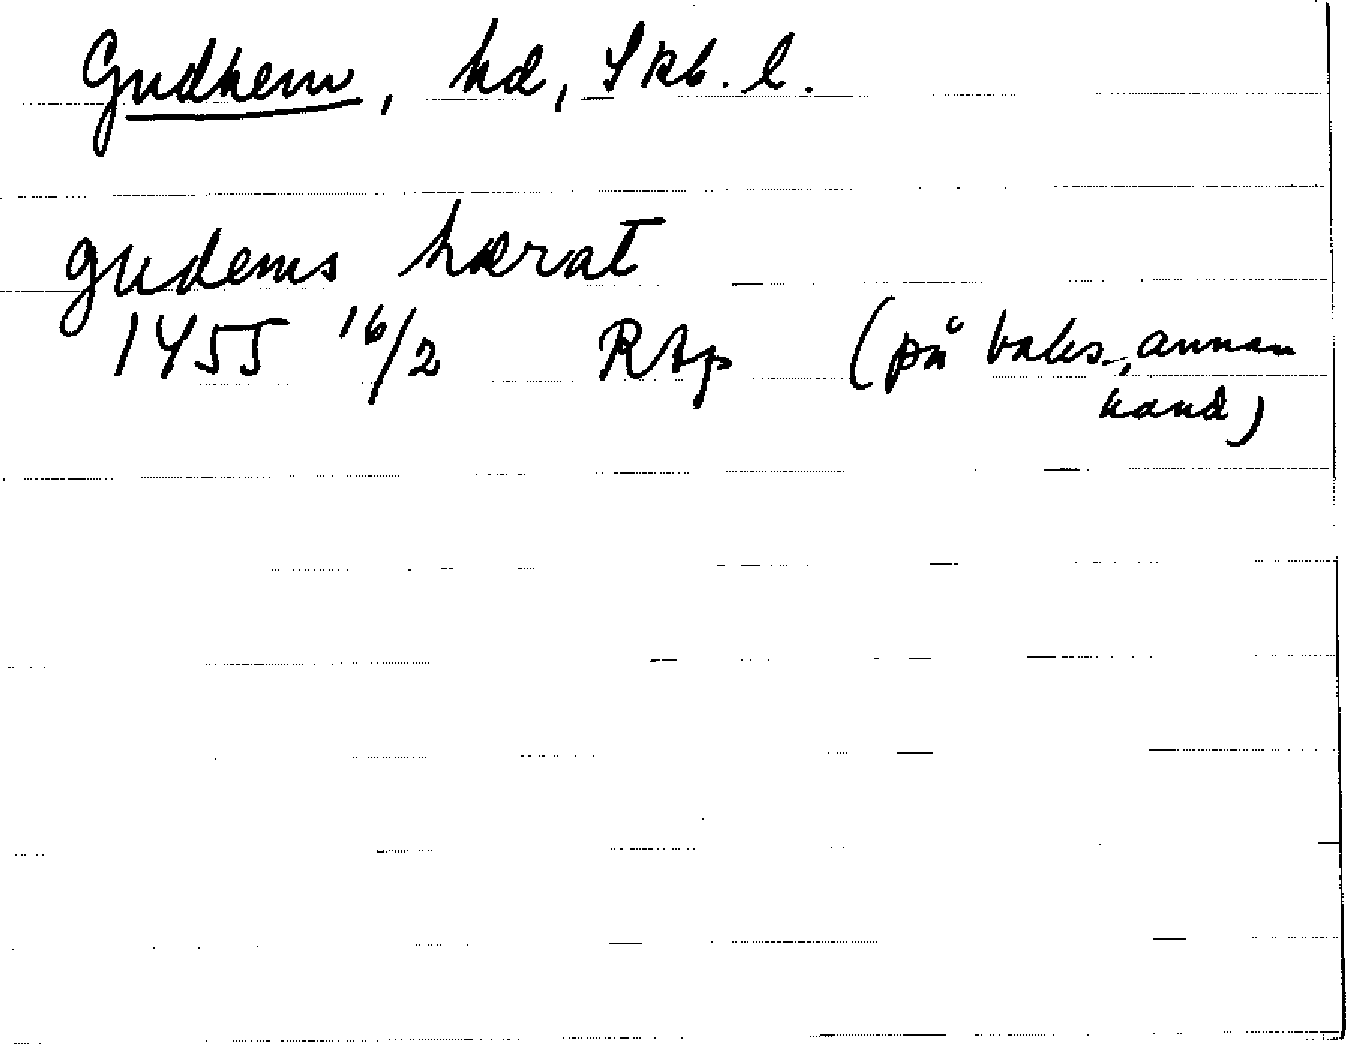 Gudhem, hd, Skb. l.
gudems hærat
1455 16/2 RAp (på baks, annan
hand)